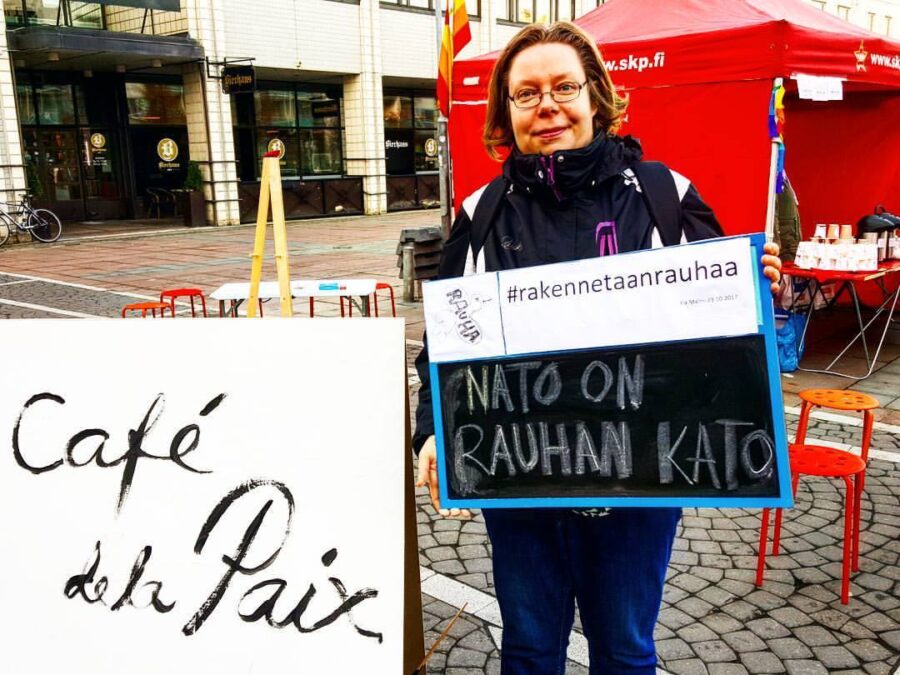 Bierhaus
Bierhaus
w.skp.fi
www.s
#rakennetaanrauhaa
RAUHA
NATO ON
RAUHAN KATO
Café
de la Paix